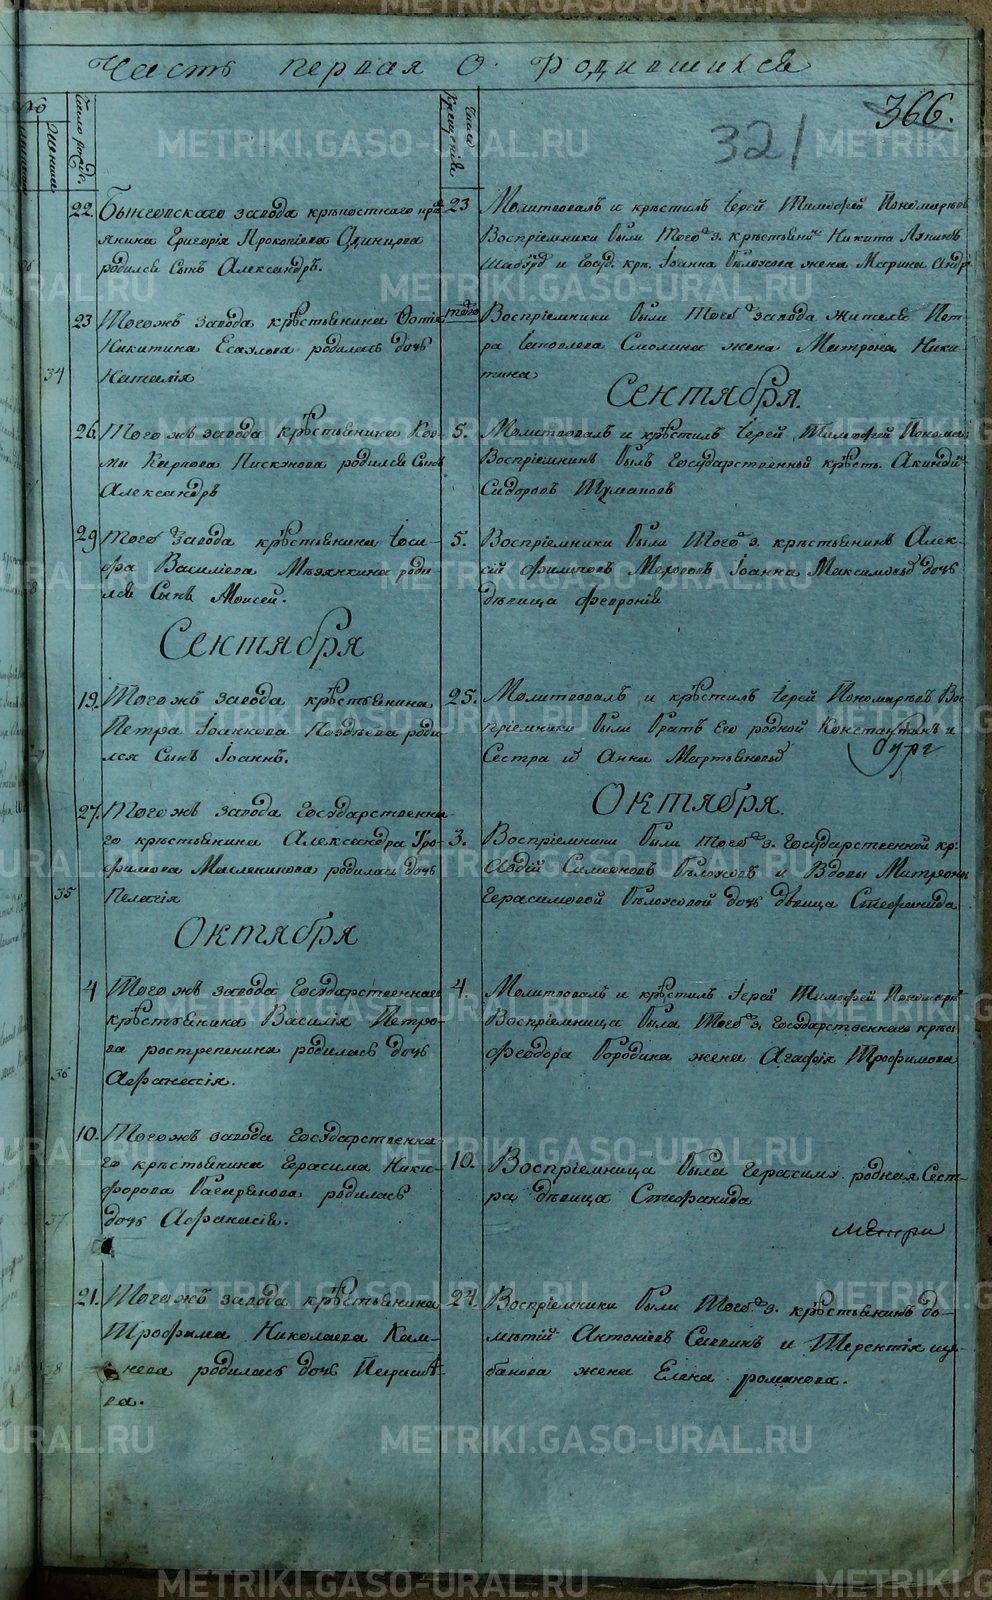 Часть первая о родившихся
366.
321
Число рожд.
Число крещенія
женска
22. Бынговскаго завода крѣпостнаго крѣ
янина Григорія Прокопіева Одинцова
родился сынъ Александръ.
23 Молитвовалъ и крѣстилъ Іерей Тимофей Пономаревъ
Воспріемники были того ж з. крѣстьянинъ Никита
и Госуд. кре. Іоанна Бѣлохова жена Марина Андр
34
23 Тогожъ завода крѣстьянина Фотія
Никитина Есаулова родилась дочь
Наталія
того Воспріемники были того ж завода жителя Пет
ра Смолина жена Матрона Ники
тина
Сентября.
26. Тогожъ завода крѣстьянина Коз
мы Карпова Пискунова родился сынъ
Александръ
5. Молитвовалъ и крѣстилъ Іерей Тимофей Понома
Воспріемникъ былъ Государственной крѣсть. Акиндій
Сидоровъ Тумановъ
29 того завода крѣстьянина Іоси-
фа Василіева Мезянкина роди
лся сынъ Моисей.
5. Воспріемники были того ж з. крѣстьянинъ Алек-
сій Филиповъ Іоанна Максимова дочь
дѣвица Февронія
Сентября
19. Тогожъ завода крѣстьянина
Петра Іоаннова Поздѣева роди
лся сынъ Іоаннъ.
25. Молитвовалъ и крѣстилъ Іерей Пономаревъ Вос
пріемники были братъ его родной Константинъ и
Сестра Анна Мартьянова
27. Тогожъ завода Государственна
го крѣстьянина Александра Тро
фимова Масленикова родилась дочь
Пелагія
35
Октября.
3. Воспріемники были того ж з. Государственной кр:
Авдій Симеоновъ Бѣлоховъ и Вдовы Матроны
Герасимовой Бѣлоховой дочь дѣвица Стефанида
Октября
4 Тогожъ завода Государственнаго
крѣстьянина Василія Петро-
ва ростропенина родилась дочь
Афанасія.
36
4 Молитвовалъ и крѣстилъ Іерей Тимофей Пономаре
Воспріемница была того ж з. Государственнаго крѣс
Феодора Бородина жена Агафія Трофимова
10. Тогожъ завода Государственна
го крѣстьянина Герасима Ники-
форова родилась
дочь Афанасія.
37
10. Воспріемница была Герасиму родная Сест-
ра дѣвица Стефанида
21. Тогожъ завода крѣстьянина
Трофима Николаева Кам-
нева родилась дочь Параске
ва.
24. Воспріемники были того ж з. крѣстьянинъ До-
метій Антоніевъ Саввинъ и Терентія Щер
бакова жена Елена романова.
METRIKI.GASO-URAL.RU